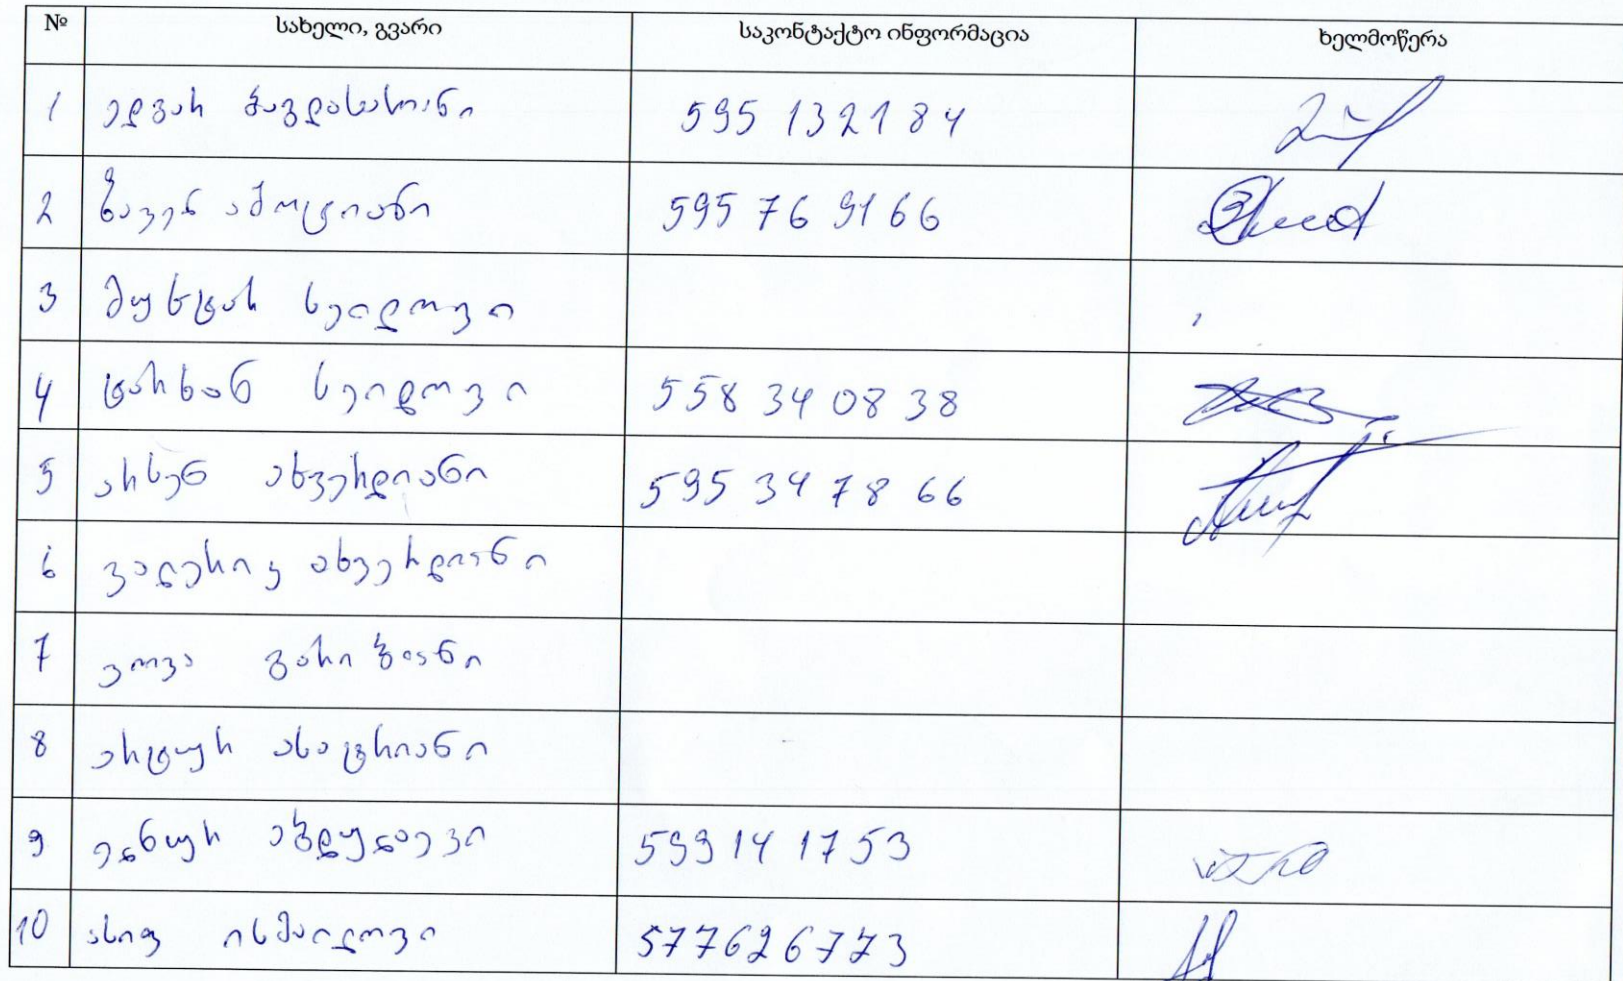 № სახელი, გვარი საკონტაქტო ინფორმაცია ხელმოწერა
1 ედგარ ბაგდასარიანი 595 132184
2 ზავენ ამოიანი 595 76 9166
3 მუხტარ სეიდოვი
4 ტარხან სეიდოვი 558 34 08 38
5 არსენ ახვერდიანი 595 34 78 66
6 ვალერიკ ახვერდიანი
7 ვოვა გარიბიანი
8 არტურ ასატრიანი
9 ელნურ აბდულაევი 593 14 17 53
10 ასიფ ისმაილოვი 577626773